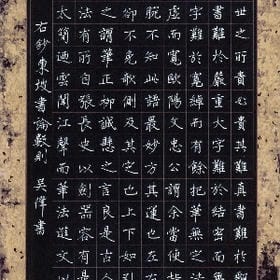 世之所貴必貴其難真書難於飄
書難於嚴重大字難於結密而小
字難於寬綽而有餘把筆無定法
虛而寬歐陽文忠公謂余當使指
腕不知此語最妙方其運也左右
却不免欹側及其定也上下如引
之謂筆正柳誠懸之言良是古人
法有所自張長史以劍器容有是
太簡迺云聞江聲而筆法進文與
右鈔東坡書論數則 吳偉書